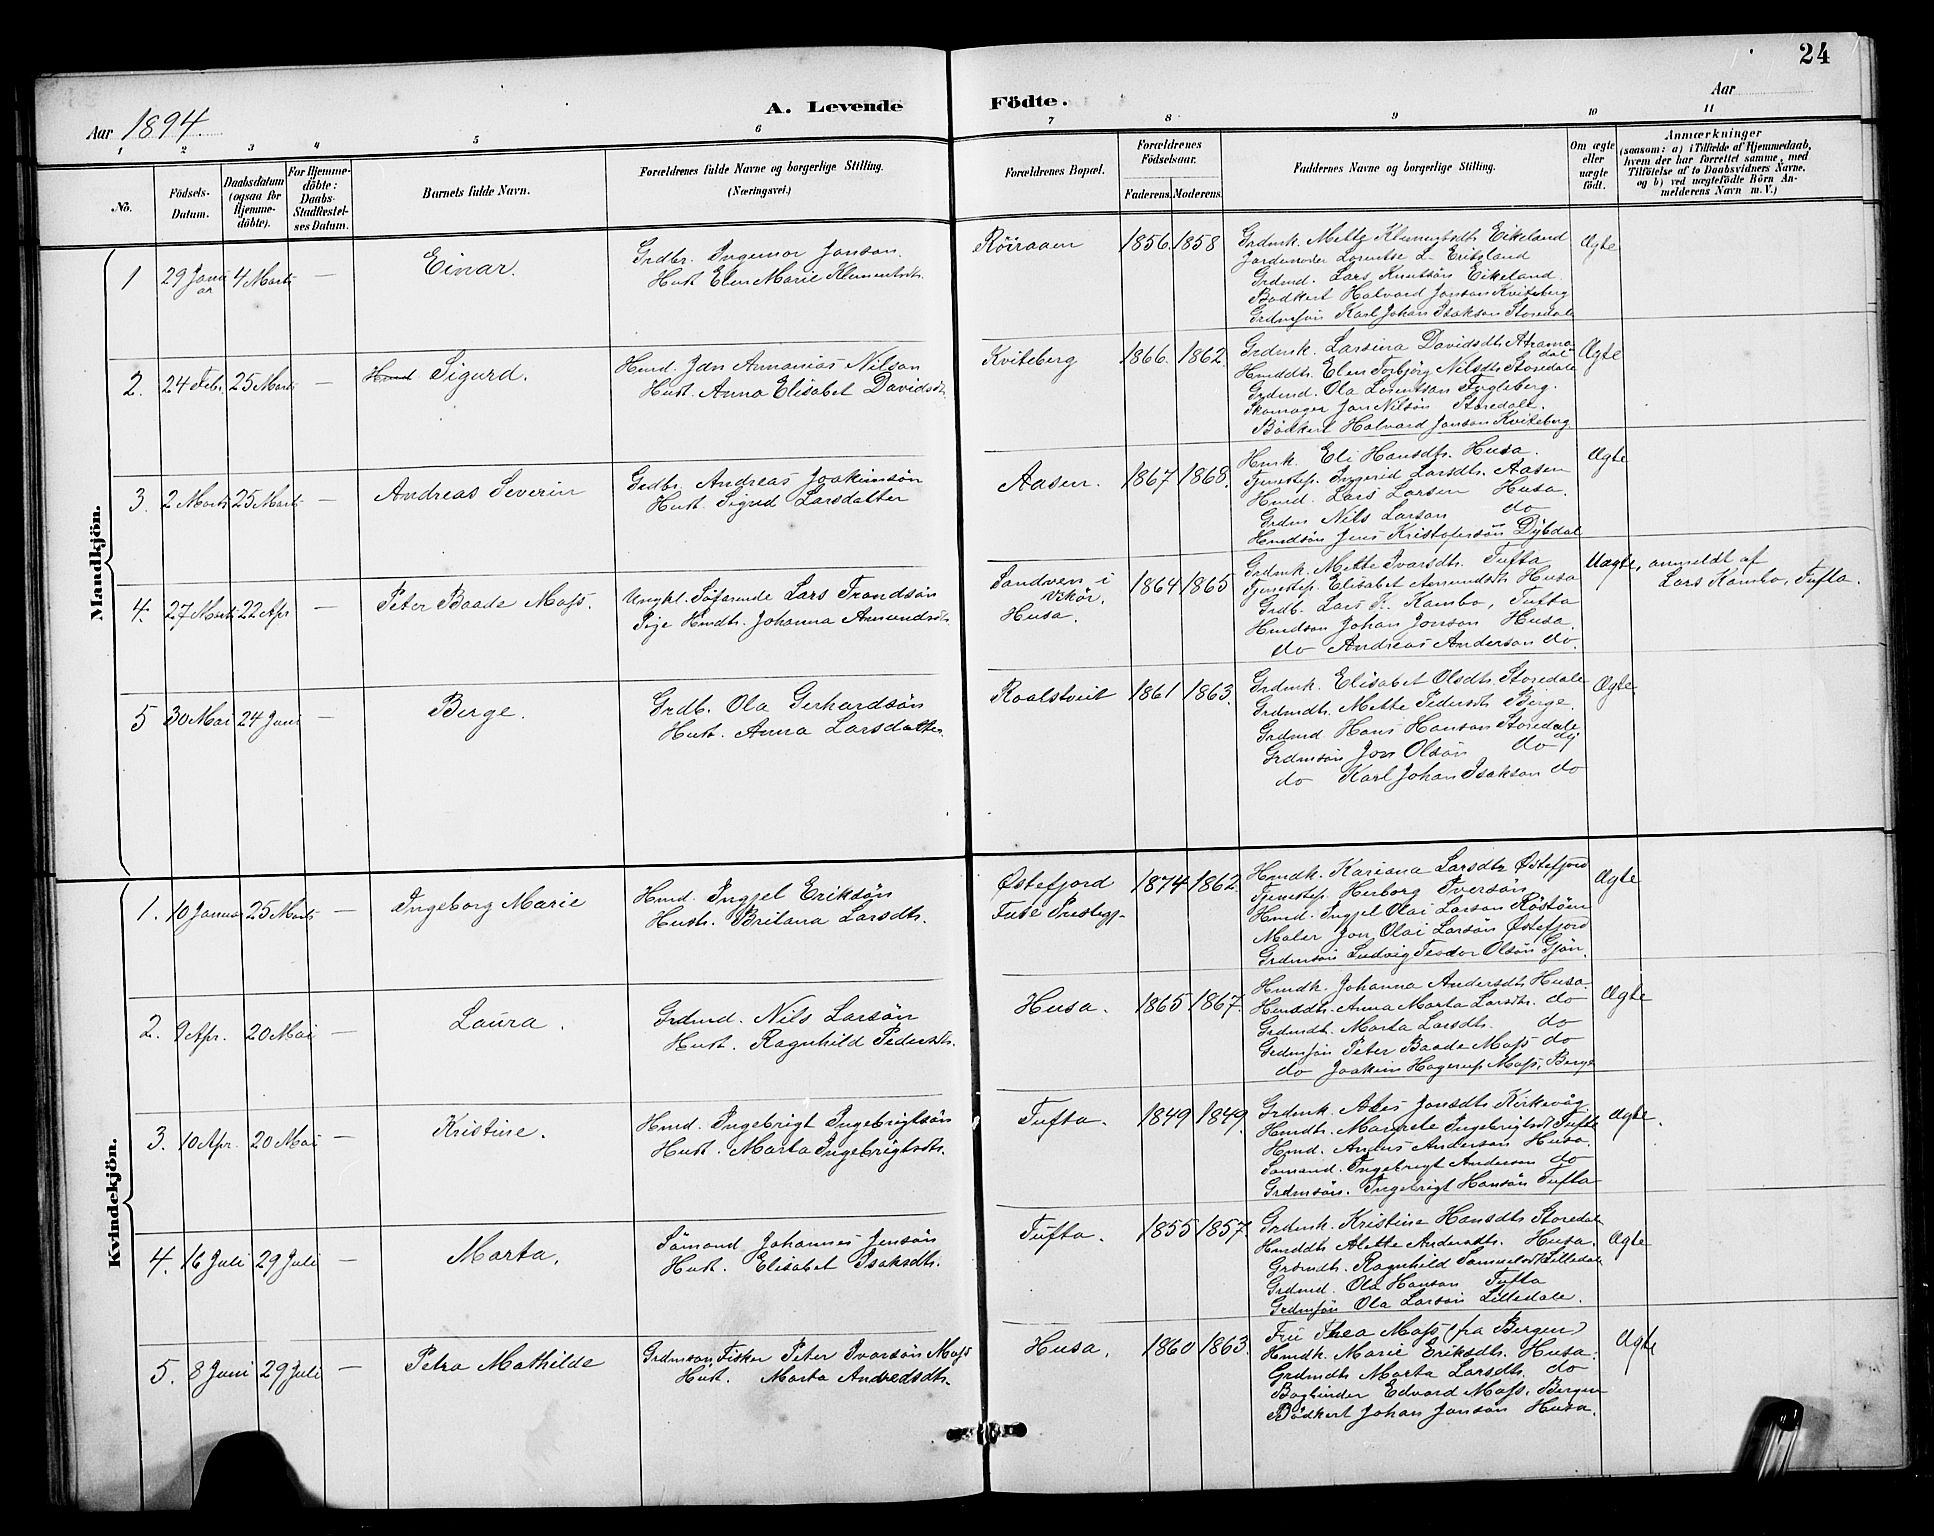 24
Aar 1894.
A. Levende Födte.
Aar
1 2 3 4 5 6 7 8 9 10 11
No.
Födsels-Datum.
Daabsdatum (ogsaa for Hjemme-döbte).
For Hjemme-döbte: Daabs-Stadfæstel-ses Datum.
Barnets fulde Navn.
Forældrenes fulde Navne og borgerlige Stilling. (Næringsvei.)
Forældrenes Bopæl.
Forældrenes Födselsaar.
Faderens. Moderens.
Faddernes Navne og borgerlige Stilling.
Om ægte eller uægte födt.
Anmærkninger
(saasom: a) i Tilfælde af Hjemmedaab, hvem der har forrettet samme, med Tilföielse af to Daabsvidners Navne, og b) ved uægtefödte Börn An-melderens Navn m. V.)
Mandkjön.
1 29 Januar 4 Marts — Einar.
Grdbr. Ingemor Jonson
Hust. Elen Marie Klementsdtr.
Röiraaen 1856. 1858
Grdmk. Mette Klementsdtr Eikeland
Jordemoder Lorentse L. Eikeland
Grdmd. Lars Knutsön Eikeland.
Bödkert Halvard Jonson Kviteberg
Grdmsön Karl Johan Isakson Storedale
Ægte
2. 24 Febr. 25 Marts — Sigurd.
Hmd. Jon Annanias Nilson
Hust. Anna Elisabet Davidsdtr.
Kviteberg 1866. 1862.
Grdmk. Larsina Davidsdtr.
Hmddtr. Elen Torbjörg Nilsdtr Storedale
Grdmd. Ola Lorentson Fugleberg.
Skomager Jon Nilsön Storedale.
Bödkert Halvard Jonson Kviteberg
Ægte
3. 2 Marts 25 Marts — Andreas Severin
Grdbr. Andreas Joakimsön
Hust. Sigrid Larsdatter
Aasen. 1867 1868.
Hmk. Eli Hansdtr. Husa.
Tjenestep. Ingerid Larsdtr. Aasen
Hmd. Lars Larsen Husa.
Grdm Nils Larson do
Hmdsön Jens Kristofersön Dybdal
Ægte
4. 27 Marts 22 Apr — Peter Baade Moss.
Ungkl. Söfarende Lars Trondsön
Pige Hmdtr. Johanna Amundsdtr.
Sandven i Vikör. Husa.
1864 1865
Grdmk. Mette Ivarsdtr. Tufta
Tjenestep. Elisabet Amundsdtr Husa
Grdb. Lars K. Kambo, Tufta
Hmdson Johan Jonson Husa.
do Andreas Anderson do.
Uægte, anmeldt af
Lars Kambo, Tufta.
5 30 Mai 24 Juni — Berge.
Grdb. Ola Gerhardsön
Hust. Anna Larsdatter.
Roalstveit 1861 1863.
Grdmk. Elisabet Olsdtr. Storedale
Grdmdtr. Mette Pedersdtr Berge.
Grdmd Hans Hanson Storedale
Grdmsön Jon Olsön do
do Karl Johan Isakson do
Ægte
Kvindekjön.
1. 10 Januar 25 Marts — Ingeborg Marie
Hmd. Ingjel Eriksön
Hustr. Britana Larsdtr.
Østefjord
Fuse Prestegj.
1874 1862.
Hmdk. Kariana Larsdtr Østefjord
Tjenestep. Herborg Iversön
Hmd. Ingjel Olai Larson Röstöen
Maler Jon Olai Larsön Østefjord
Grdmsön Ludvig Teodor Olsön Gjön.
Ægte
2. 9 Apr. 20 Mai — Laura.
Grdmd. Nils Larsön
Hust. Ragnhild Pedersdtr.
Husa. 1865 1867.
Hmdk. Johanna Andersdtr Husa.
Hmddtr. Anna Marta Larsdtr. do
Grdmdtr. Marta Larsdtr. do
Grdmsön Peter Baade Moss do
do Joakim Hagerup Moss, Berge
Ægte
3. 10 Apr. 20 Mai — Kristine.
Hmd. Ingebrigt Ingebrigtsön
Hust. Marta Ingebrigtsdtr.
Tufta. 1849 1849.
Grdmk. Jonsdtr Kirkevåg
Hmdtr. Margrete Ingebrigtsdtr Tufta
Hmd. Anders Anderson Husa.
Sömand. Ingebrigt Anderson do
Grdmsön. Ingebrigt Hansön Tufta
Ægte.
4. 16 Juli 29 Juli — Marta.
Sömand Johannes Jensön
Hust. Elisabet Isaksdtr.
Tufta. 1855 1857.
Grdmk. Kristine Hansdtr Storedale
Hmddtr Alette Andersdtr. Husa.
Grdmdtr. Ragnhild Samuelsdtr Lilledale
Grdmd. Ola Hanson Tufta
Grdmsön Ola Larsön Lilledale.
Ægte
5. 8 Juni 29 Juli — Petra Mathilde
Grdmson Fisker Peter Ivarsön Moss
Hust. Marta Andredsdtr.
Husa. 1860 1863.
Fru Thea Moss (fra Bergen)
Hmdk. Marie Eriksdtr. Husa.
Grdmdtr Marta Larsdtr. do
Bogbinder Edvard Moss, Bergen
Bödkert Johan Jonson Husa.
Ægte